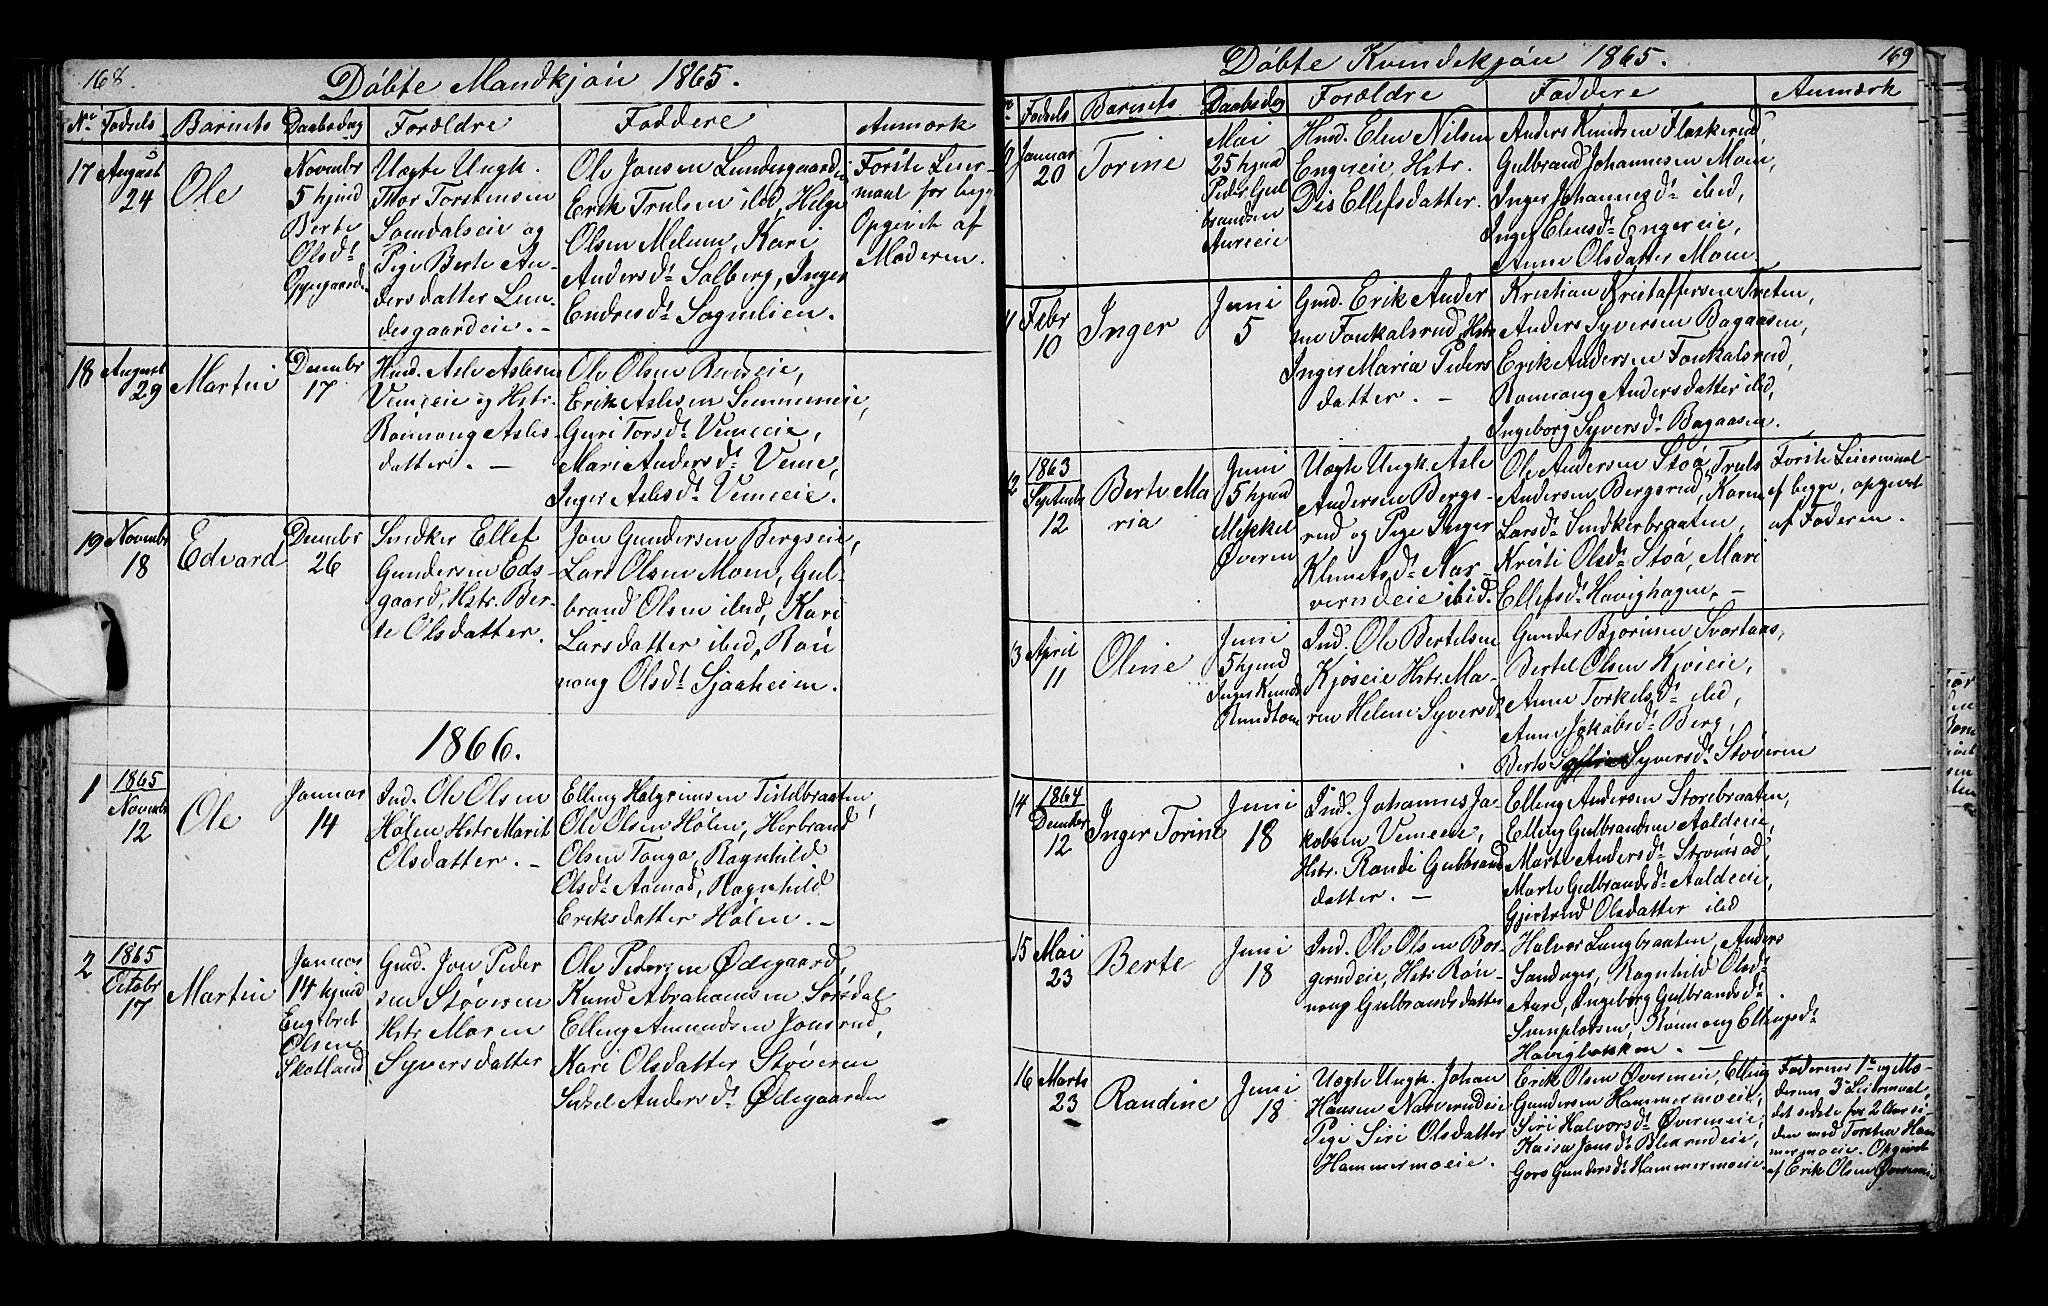 168.
Døbte Mandkjøn 1865.
Nº Fødsels Barnets Daabsdag Forældre Faddere Anmærk
17 August
24
Ole
Novembr
5 hjmd
Berte
Olsdr
Oppegaard
Uægte Ungk.
Thor Torstensen
Somdalseie og
Pige Berte An-
dersdatter Lun-
desgaardeie. -
Ole Jonsen Lundesgaardeie
Erik Trulsen ibd, Helge
Olsen Melum, Kari
Andersdr Solberg, Inger
Endresdr Sognelien.
Første Leier-
maal for begge
Opgivet af
Moderen.
18 August
29
Martin
Decmbr
17
Husmd. Asle Aslesen
Vemeeie og Hstr.
Rønnong Asles-
datter. -
Ole Olsen Rudseie,
Erik Aslesen
Guri Torsdr Vemeeie,
Mari Andersdr Veme,
Inger Aslesdr Vemeeie.
19 Novembr
18
Edvard
Decmbr
26
Smdker Ellef
Gundersen Eds-
gaard, Hstr. Ber-
te Olsdatter.
Jon Gundersen Bergseie,
Lars Olsen Moen, Gul-
brand Olsen ibd, Kari
Larsdatter ibd, Røn
nong Olsdr Sjaaheim.
1866.
1 1865
Novembr
12
Ole
Januar
14
Ind. Ole Olsen
Hølen Hstr Marit
Olsdatter. -
Elling Halgrimsen Tistelbraaten,
Ole Olsen Hølen, Herbrand
Olsen Tonga, Ragnhild
Olsdr Aamod, Ragnhild
Eriksdatter Hølen. -
2 1865
Octobr
17
Martin
Januar
14 hjmd
Engebret
Olsen
Skotland
Gmd. Jon Peder
sen Støveren
Hstr Maren
Syversdatter
Ole Pedersen Ødegaard,
Knud Abrahamsen Sørsdal
Elling Amundsen Jonsrud,
Kari Olsdatter Støveren
Sidsel Andersdr Ødegaarden
169
Døbte Kvindekjøn 1865.
Fødsels Barnets Daabsdag Forældre Faddere Anmærk
Januar
20
Torine
Mai
25 hjmd
Peder Gul
brandsen
Aureeie
Husmd. Elen Nilsen
Engereie, Hstr.
Dis Ellefsdatter.
Anders Knudsen Flaskerud,
Gulbrand Johannesen Moen,
Inger Johannesdr ibid,
Inger Elensdr Engereie,
Anne Olsdatter Moen.
Febr
10
Inger
Juni
5
Gmd. Erik Ander
sen Fonkalsrud, Hstr
Inger Maria Peders
datter. -
Kristian Kristoffersen Treten,
Anders Syversen Bagaasen,
Erik Andersen Fonkalsrud,
Rønnong Andersdatter ibd,
Ingeborg Syversdr Bagaasen.
12 1863
Septembr
12
Berte Ma
ria
Juni
5 hjmd
Mikkel
Øveren
Uægte Ungk. Asle
Andersen Bergs-
rud og Pige Inger
Klemetsdr Nar-
verudeie ibid.
Ole Andersen Stoa, Truls
Andersen Bergsrud, Karen
Larsdr Smdkerbraaten,
Kristi Olsdr Stoa, Mari
Ellefsdr Høvighagen. -
Første Leiermaal
af begge, opgivet
af Faderen.
13 April
11
Oline
Juni
5 hjmd
Inger Knuds
Rundtom
Ind. Ole Bertelsen
Kjøseie Hstr. Ma-
ren Helene Syversdr
Gunder Bjørnsen Svartaas,
Bertel Olsen Kjøseie,
Anne Torkelsdr ibd,
Anne Jakobsdr Berg,
Berte Syversdr Støveren
14 1864
Decmber
12
Inger Torine
Juni
18
Ind. Johannes Ja-
kobsen Vemeeie,
Hstr. Randi Gulbrands
datter. -
Elling Andersen Storebraaten,
Elling Gulbrandsen Aaldeeie,
Marte Andersdr Strømsod,
Marte Gulbrandsdr Aaldeeie,
Gjertrud Olsdatter ibd
15 Mai
23
Berte
Juni
18
Ind. Ole Olsen Bor-
gerudeie, Hstr. Røn-
nong Gulbrandsdatter
Halvor Langbraaten, Anders
Sandager, Ragnhild Olsdr
Aure, Ingeborg Gulbrandsdr
Rønnong Ellingsdr
Høvigbakken. -
16 Marts
23
Randine
Juni
18
Uægte Ungk. Johan
Hansen Narverudeie
Pige Siri Olsdatter
Hammermoeie.
Erik Olsen Øvermeie, Elling
Gundersen Hammermoeie,
Siri Halvorsdr Øvermeie,
Kaisa Jonsdr Bleksrudeie,
Goro Gundersdr Hammermoeie
Faderens 1e og Mo-
derens 3e Leiermaal,
det sidste for 2 Aar si
den med Torsten Ham
mermoeie. Opgivet
af Erik Olsen Øvermeie